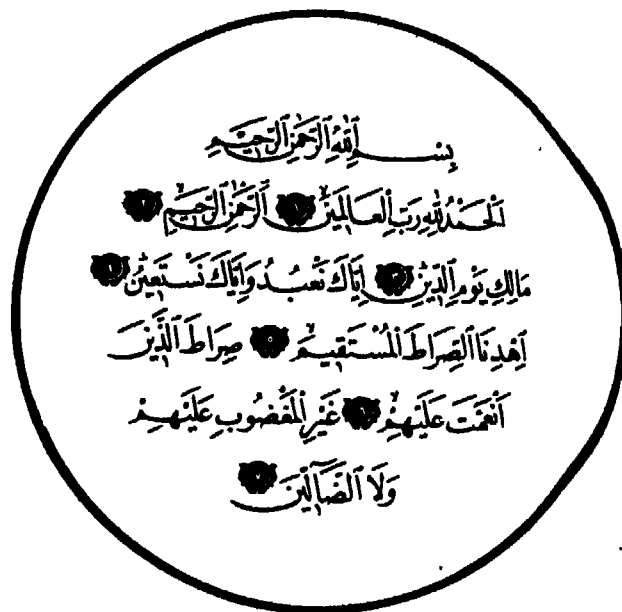 بِسْمِ اللَّهِ الرَّحْمَٰنِ الرَّحِيمِ
اَلْحَمْدُ لِلَّهِ رَبِّ الْعَالَمِينَ ١ اَلرَّحْمَٰنِ الرَّحِيمِ ٢
مَالِكِ يَوْمِ الدِّينِ ٣ اِيَّاكَ نَعْبُدُ وَاِيَّاكَ نَسْتَعِينُ ٤
اِهْدِنَا الصِّرَاطَ الْمُسْتَقِيمَ ٥ صِرَاطَ الَّذِينَ
اَنْعَمْتَ عَلَيْهِمْ ٦ غَيْرِ الْمَغْضُوبِ عَلَيْهِمْ
وَلَا الضَّآلِّينَ ٧